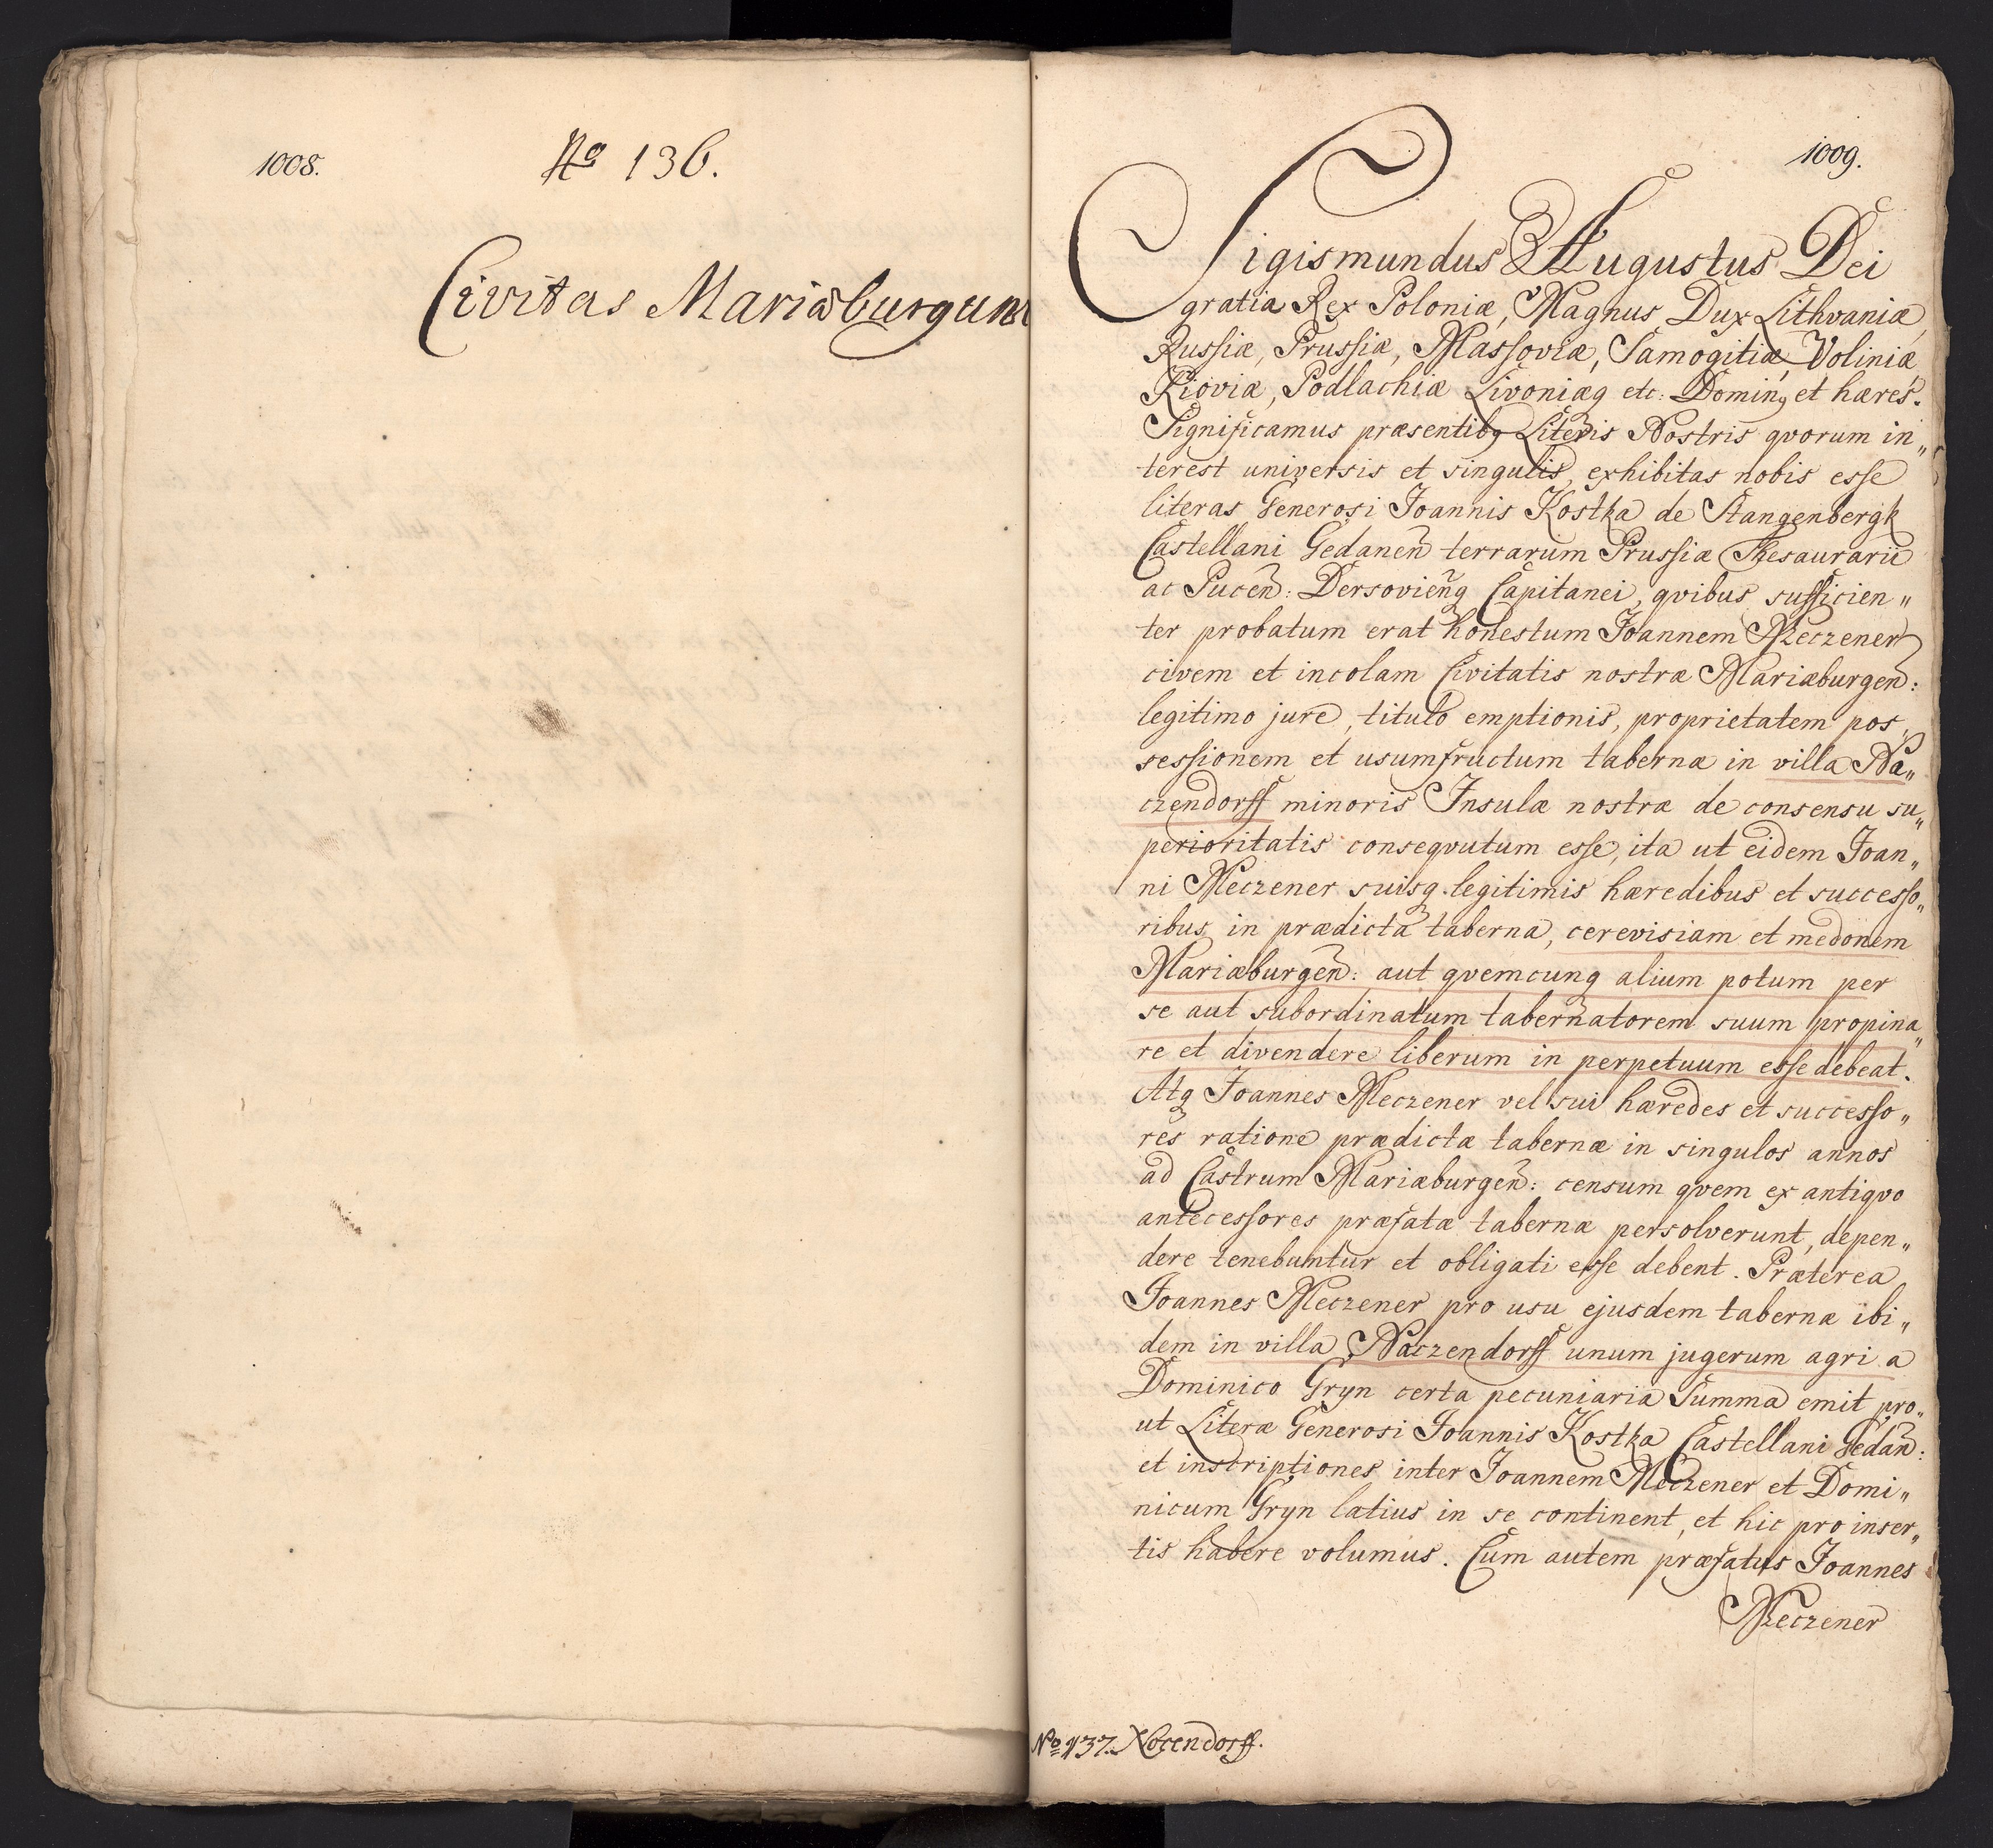 1008.
No 136.
Civitas Mariæburgum
1009.
Sigismundus Augustus Dei
gratia Rex Poloniæ, Magnus Dux Lithvaniæ,
Russiæ, Prussiæ, Massoviæ, Samogitiæ, Voliniæ,
Kioviæ, Podlachiæ Livoniæq etc: Dominꝰ et hæres.
Significamus præsentibꝰ Literis Nostris qvorum in„
terest universis et singulis, exhibitas nobis esse
literas Generosi Joannis Kostka de Stangenbergk
Castellani Gedanen̄ terrarum Prussiæ Thesaurarii
ac Pucen̄: Dersovien̄q Capitanei, qvibus sufficien„
ter probatum erat honestum Joannem Meczener
civem et incolam Civitatis nostræ Mariæburgen̄:
legitimo jure, titulo emptionis, proprietatem pos„
sessionem et usumfructum tabernæ in villa Na„
czendorff minoris Insulæ nostræ de consensu su„
perioritatis conseqvutum esse, ita ut eidem Joan„
ni Meczener suisq legitimis hæredibus et successo„
ribus in prædicta taberna, cerevisiam et medonem
Mariæburgen̄: aut qvemcunq alium potum per
se aut subordinatum tabernatorem suum propina„
re et divendere liberum in perpetuum esse debeat.
Atq Joannes Meczener vel sui hæredes et successo„
res ratione prædictæ tabernæ in singulos annos
ad Castrum Mariæburgen̄: censum qvem ex antiqvo
antecessores præfatæ tabernæ persolverunt, depen„
dere tenebuntur et obligati esse debent. Præterea
Joannes Meczener pro usu ejusdem tabernæ ibi„
dem in villa Naczendorff unum jugerum agri a
Dominico Gryn certa pecuniaria Summa emit pro„
ut Literæ Generosi Joannis Kostka Castellani Gedan̄:
et inscriptiones inter Joannem Meczener et Domi„
nicum Gryn latius in se continent, et hic pro inser„
tis habere volumus. Cum autem præfatus Joannes
Meczener
No 137. Nocendorff.